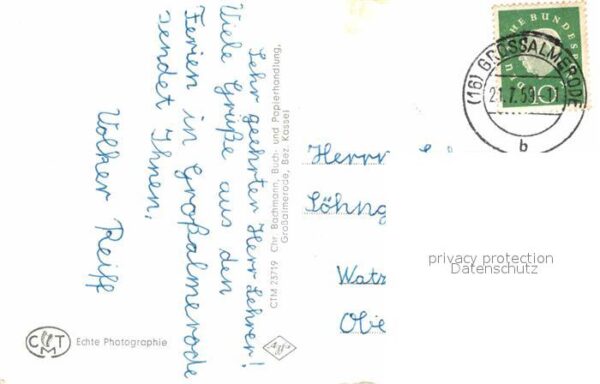 Sehr geehrten Herr Lehrer!
Viele Grüße aus den
Ferien in Großalmerode
sendet Ihnen,
Volker Reiff
CTM 23719 Chr. Bachmann, Buch- und Papierhandlung,
Großalmerode, Bez. Kassel
CTM
Echte Photographie
Agfa
(16) GROSSALMERODE
21.7.59
b
HE BUNDESP
10
Herrn
Söhng
Watz
Obe
privacy protection
Datenschutz